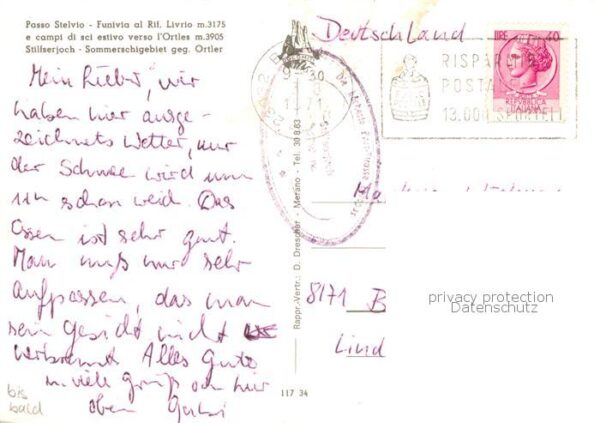 Passo Stelvio - Funivia al Rif. Livrio m.3175
e campi di sci estivo verso l'Ortles m.3905
Stilfserjoch - Sommerschigebiet geg. Ortler
Mein Lieber, wir
haben hier ausge-
zeichnets Wetter, nur
der Schnee wird um
11h schon weich. Das
Essen ist sehr gut.
Man muß nur sehr
aufpassen, das man
sein Gesicht nicht
verbrennt Alles Gute
u. viele Grüße von hier
oben Gabi
bis
bald
Rappr.-Vertr.: D. Drescher - Merano - Tel. 30863
117 34
Deutschland
LIRE 40
REPVBBLICA
ITALIANA
RISPARMIO
POSTALE
13.000 SPORTELLI
8171 B
Lind
privacy protection
Datenschutz